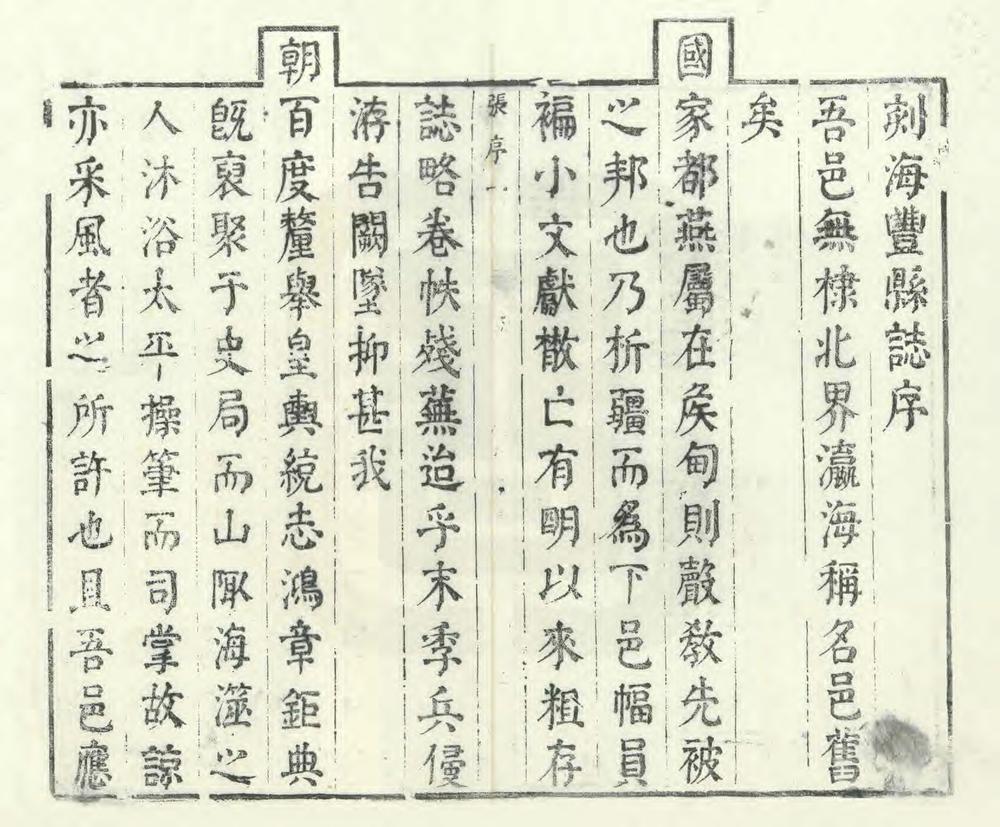 刻海豐縣誌序
吾邑無棣北界瀛海稱名邑舊
矣
國家都燕屬在矦甸則聲敎先被
之邦也乃析疆而爲下邑幅員
褊小文獻散亡有明以來粗存
張序一
誌略卷帙殘蕪迨乎末季兵侵
洊告闕墜抑甚我
朝百度釐舉皇輿統志鴻章鉅典
旣裒聚于史局而山陬海澨之
人沐浴太平操筆而司掌故諒
亦采風者之所許也且吾邑應